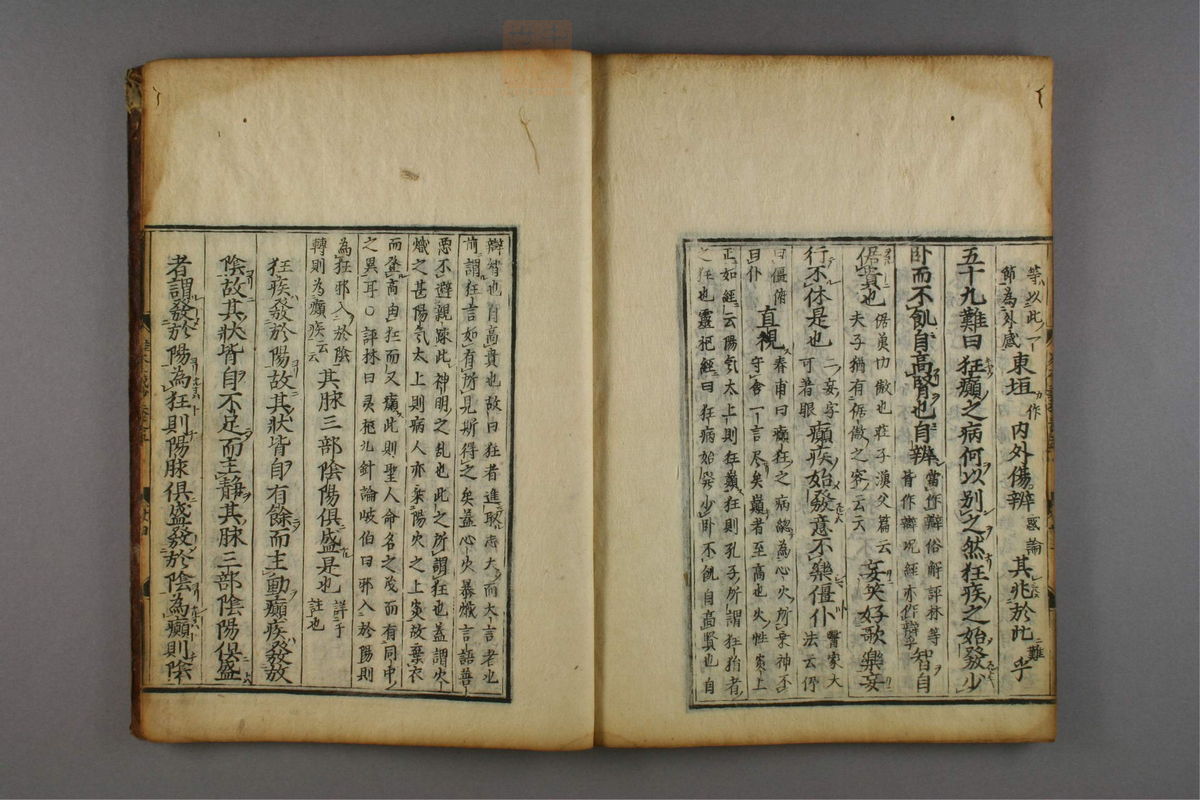 等以此
節為外感 東垣 作 内外傷辨 惑論 其兆於此 難 乎
五十九難曰狂癲之病何以別之然狂疾之始發少
卧而不飢自高賢也自辨 當作辯俗解評林等
皆作辯 智自
倨貴也 倨 傲也莊子漁父篇云
夫子猶有倨傲之容云云 妄笑好歌樂妄
行不休是也 二妄字
可著眼 癲疾始發意不樂僵仆 醫家大
法云
曰僵俯
曰仆 直視 春甫曰癲狂之病 為心火所乗神不
守舍一言尽矣巔者至高也火性炎上
正如經云陽気太上則狂巔狂則孔子所謂狂狷者
之狂也靈枢經曰狂病始発少卧不飢自高賢也自
辯智也自高貴也故曰狂者進取志大而大言者也
謂狂言如有所見斯得之矣盖心火暴熾言語善
悪不避親疎此神明之乱也此之所謂狂也盖謂火
熾之甚陽気太上則病人亦乗陽火之上炎故棄衣
而登高由狂而又癲此則聖人命名之 而有同中
之異耳○評林曰灵枢九針論岐伯曰邪入於陽則
為狂邪入於陰
轉則為癲疾云云 其脉三部陰陽俱盛是也 詳于
註也
狂疾發於陽故其狀皆自有餘而主動癲疾發於
陰故其狀皆自不足而主靜其脉三部陰陽俱盛
者謂發於陽為狂則陽脉俱盛發於陰為癲則陰